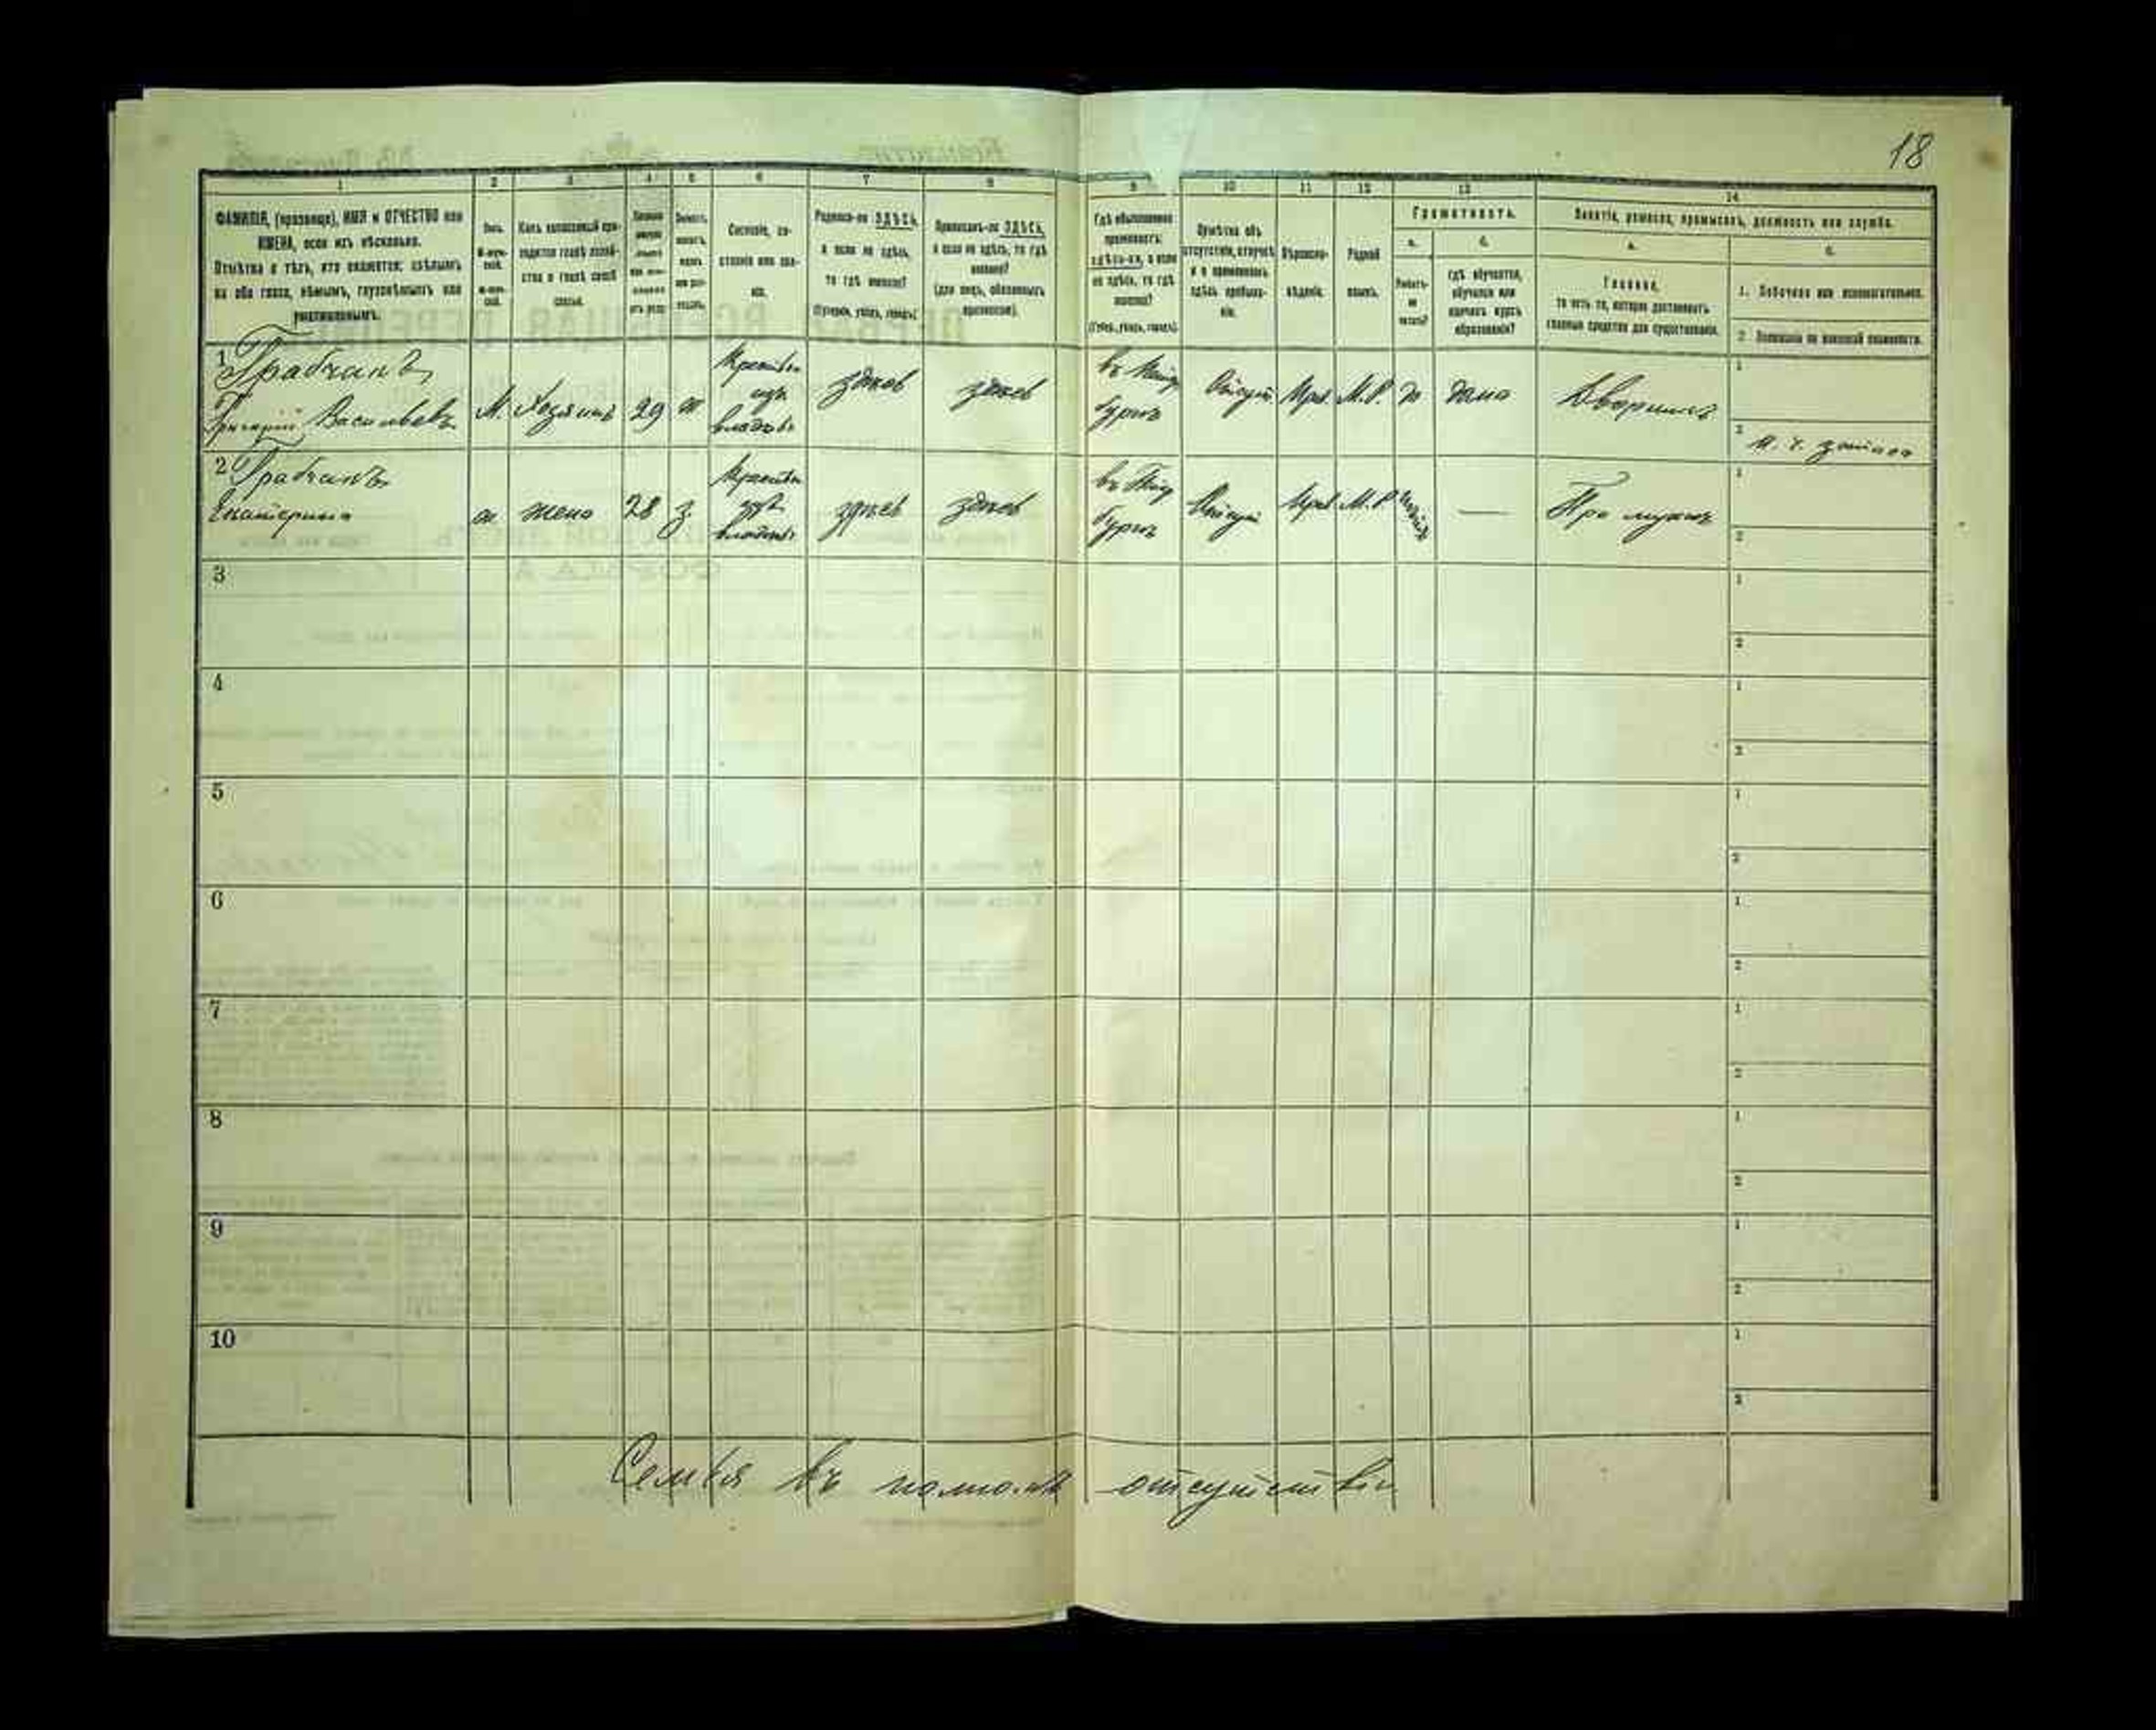 18
1 2 3 4 5 6 7 8 9 10 11 12 13 14
ФАМИЛІЯ, (прозвище), ИМЯ и ОТЧЕСТВО или
ИМЕНА, если ихъ нѣсколько.
Отмѣтка о тѣхъ, кто окажется: слѣпымъ
на оба глаза, нѣмымъ, глухонѣмымъ или
умалишеннымъ.
Полъ.
М-муж-
ской.
Ж-жен-
ской.
Какъ записанный при-
ходится главѣ хозяй-
ства и главѣ своей
семьи.
Сословіе, со-
стояніе или зва-
ніе.
Родился-ли ЗДѢСЬ,
а если не здѣсь,
то гдѣ именно?
(Губернія, уѣздъ, городъ)
Приписанъ-ли ЗДѢСЬ,
а если не здѣсь, то гдѣ
именно?
(для лицъ, обязанныхъ
припискою).
Гдѣ обыкновенно
проживаетъ:
здѣсь-ли, а если
не здѣсь, то гдѣ
именно?
(Губер., уѣздъ, городъ).
Отмѣтка объ
отсутствіи, отлучкѣ
и о временномъ
здѣсь пребыва-
ніи.
Вѣроиспо-
вѣданіе.
Родной
языкъ.
Грамотность.
а.
Умѣетъ-
ли
читать?
б.
гдѣ обучается,
обучался или
кончилъ курсъ
образованія?
Занятіе, ремесло, промыселъ, должность или служба.
а.
Главное,
то есть то, которое доставляетъ
главныя средства для существованія.
б.
1. Побочное или вспомогательное.
2. Положеніе по воинской повинности.
1 Грабчанъ
Григорій Васильевъ М. Хозяинъ 29 ж Крестьян изъ владѣл здѣсь здѣсь Отсут Прав М.Р. да дома Дворникъ
2 Грабчанъ
Екатерина ж жена 28 з. Крестьян изъ владѣл здѣсь здѣсь Отсут Прав М.Р — При мужѣ
3
4
5
6
7
8
9
10
Семья въ полномъ отсутствіи